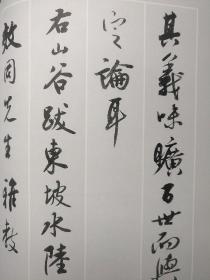 其義味曠百世而與
定論耳
右山谷跋東坡水陸
效同先生雅教